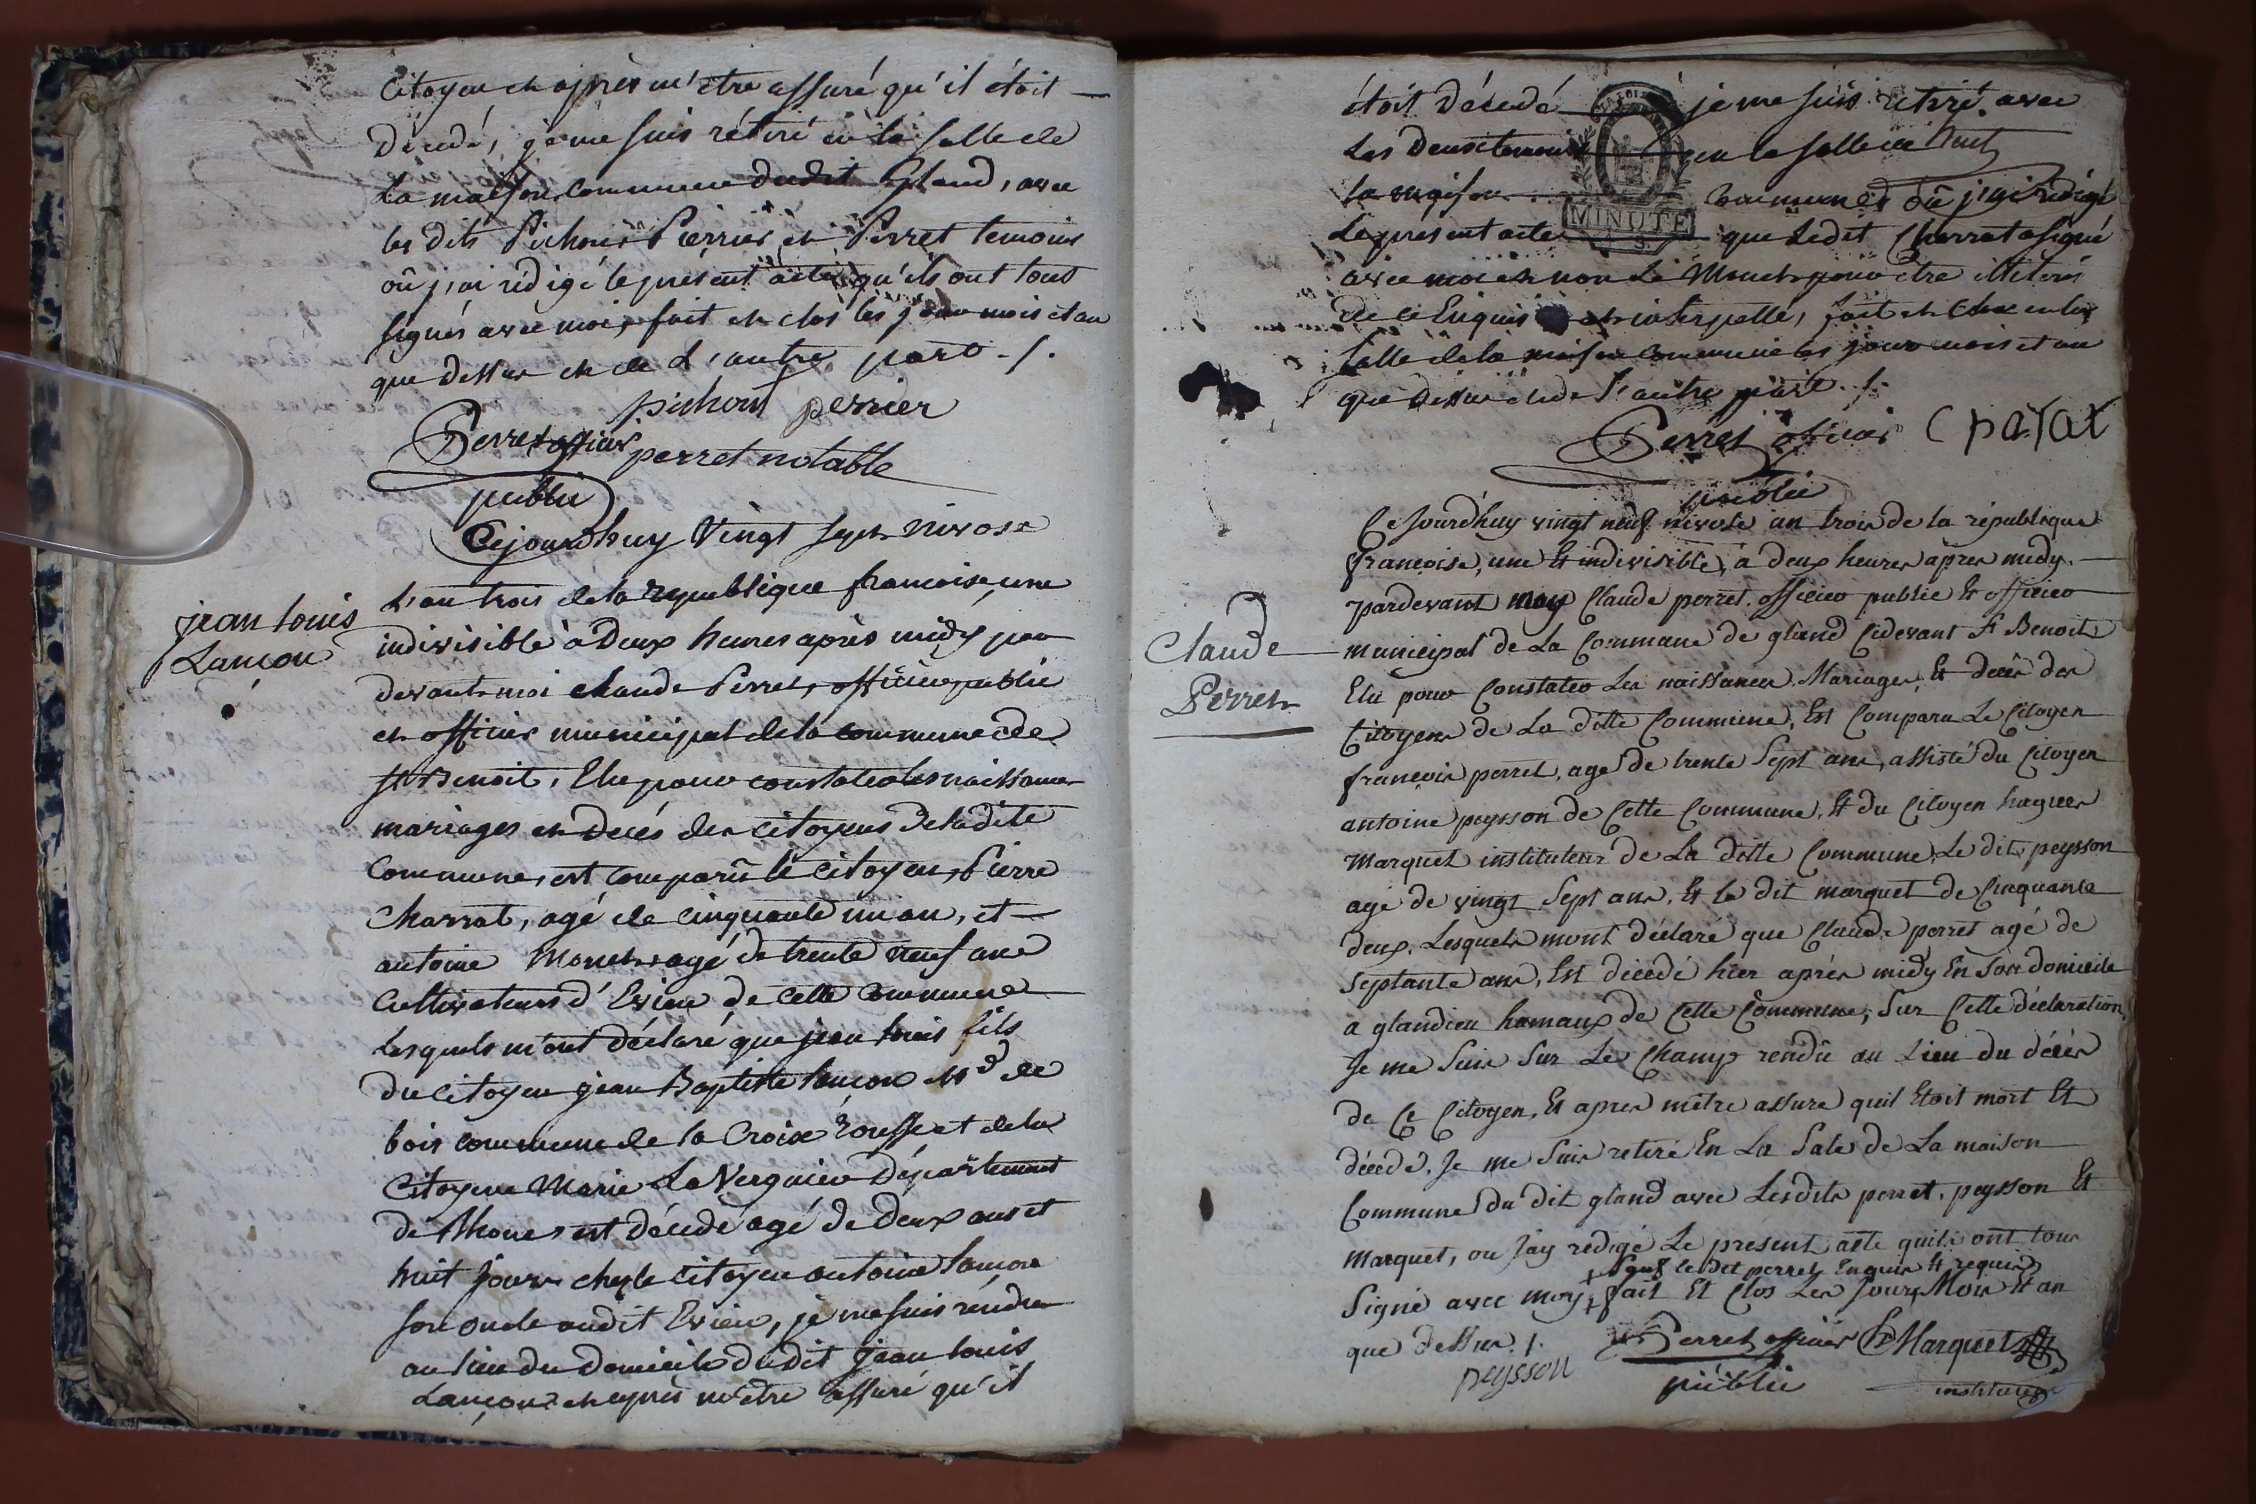 Citoyen et après m'être assuré qu'il étoit
Décédé, je me suis rétiré en la salle de
La maison commune dudit Gland, avec
les dits Pichon, Perrier, et Perret temoins
où j'ai rédigé le présent acte qu'ils ont tous
signés avec moi, fait et clos les jour mois et an
que Dessus et de L'autre part ./.
pichon perrier
Perret officier perret notable
public
Cejourdhuy Vingt sept nivose
jean louis
Lançon
L'an trois de la republique francoise, une
indivisible à Deux heures après midy par
devant moi claude Perret, officier public
et officier municipal de la commune de
St Benoit, Elu pour constater les naissances
mariages et Decés des citoyens De ladite
Commune, est comparû le citoyen, Pierre
Charrat, agé de cinquante un an, et
antoine Monet agé de trente neuf ans
Cultivateurs d'Evieu de cette commune
Lesquels m'ont déclaré que jean louis fils
du citoyen jean Baptiste lançon Md de
bois commune de la Croix Rousse et de la
Citoyene Marie La Vergnier Département
de Rhone est décédé agé de Deux ans et
huit jours chez le citoyen antoine lançon
son oncle audit Evieu, je me suis rendu
au lieu du Domicile dudit jean louis
Lançon et après m'être assuré qu'il
étoit Décedé je me suis rétiré avec
Les Deux temoins en la salle de
la maison commune où j'ai rédigé
Le present acte que Ledit Charrat a signé
avec moi et non Le Monet pour être illiteré
De ce Enquis et interpellé, fait et clos en la
salle de la maison commune les jour mois et an
que dessus et de l'autre part ./.
MINUTE
Perret officier Charat
public
Claude
Perret
Ce Jourdhuy vingt neuf nivose an trois de la république
françoise, une Et indivisible, a deux heures apres midy.
pardevant moy Claude perret officier public Et officier
municipal de La Commune de gland Cidevant St Benoit
Elu pour Constater Les naissances Mariages, Et décès des
Citoyens de La ditte Commune, Est Comparu Le Citoyen
françois perret, age de trente Sept ans, assisté du Citoyen
antoine peysson de Cette Commune, Et du Citoyen hugues
Marquet instituteur de La ditte Commune, Le dit peysson
agé de vingt Sept ans, Et le dit marquet de Cinquante
deux, Lesquels mont déclaré que Claude perret agé de
septante ans, Est décédé hier après midy En Son domicile
a glandieu hamaux de Cette Commune, Sur Cette déclaration,
Je me Suis Sur Le Champ rendû au Lieu du décès
de Ce Citoyen, Et apres mêtre assuré quil Etoit mort Et
décédé, Je me Suis retiré En La Sale de La maison
Commune du dit gland avec Lesdits perret, peysson Et
Marquet, ou Jay redigé Le présent acte quils ont tous
sauf le dit perret Enquis Et requis
Signé avec moy fait Et Clos Les Jour, Mois Et an
que dessus ./.
peysson Perret officier h Marquet
public instituteur